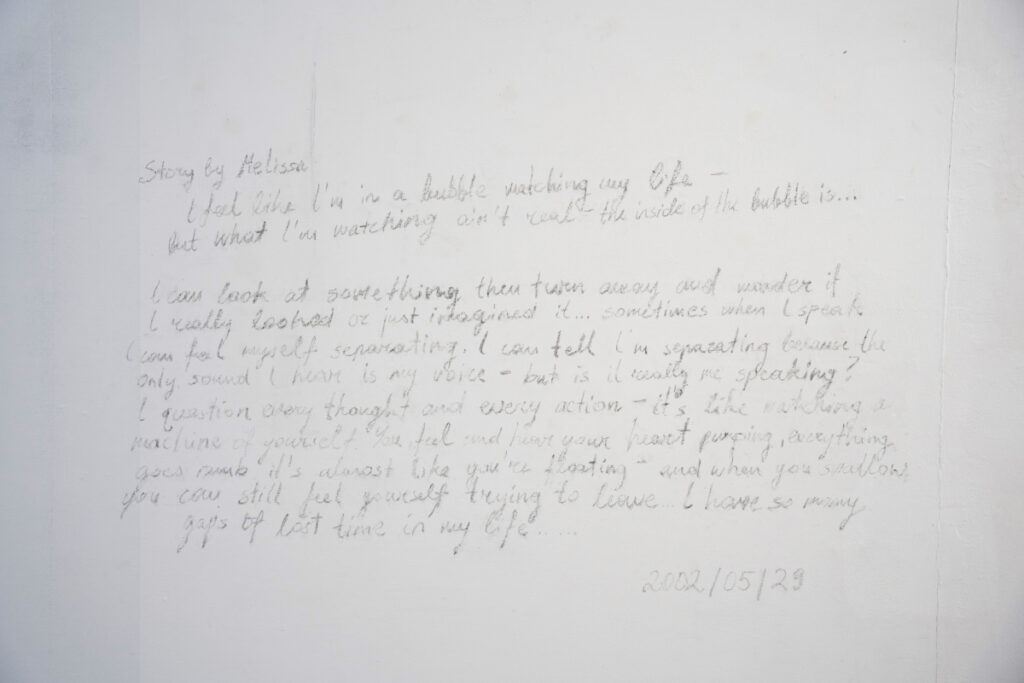 Story by Melissa
I feel like I'm in a bubble watching my life –
But what I'm watching ain't real – the inside of the bubble is...
I can look at something then turn away and wonder if
I really looked or just imagined it... sometimes when I speak
I can feel myself separating. I can tell I'm separating because the
only sound I hear is my voice – but is it really me speaking?
I question every thought and every action – it's like watching a
machine of yourself. You feel and hear your heart pumping, everything
goes numb it's almost like you're floating – and when you swallow,
you can still feel yourself trying to leave... I have so many
gaps of lost time in my life......
2002/05/29